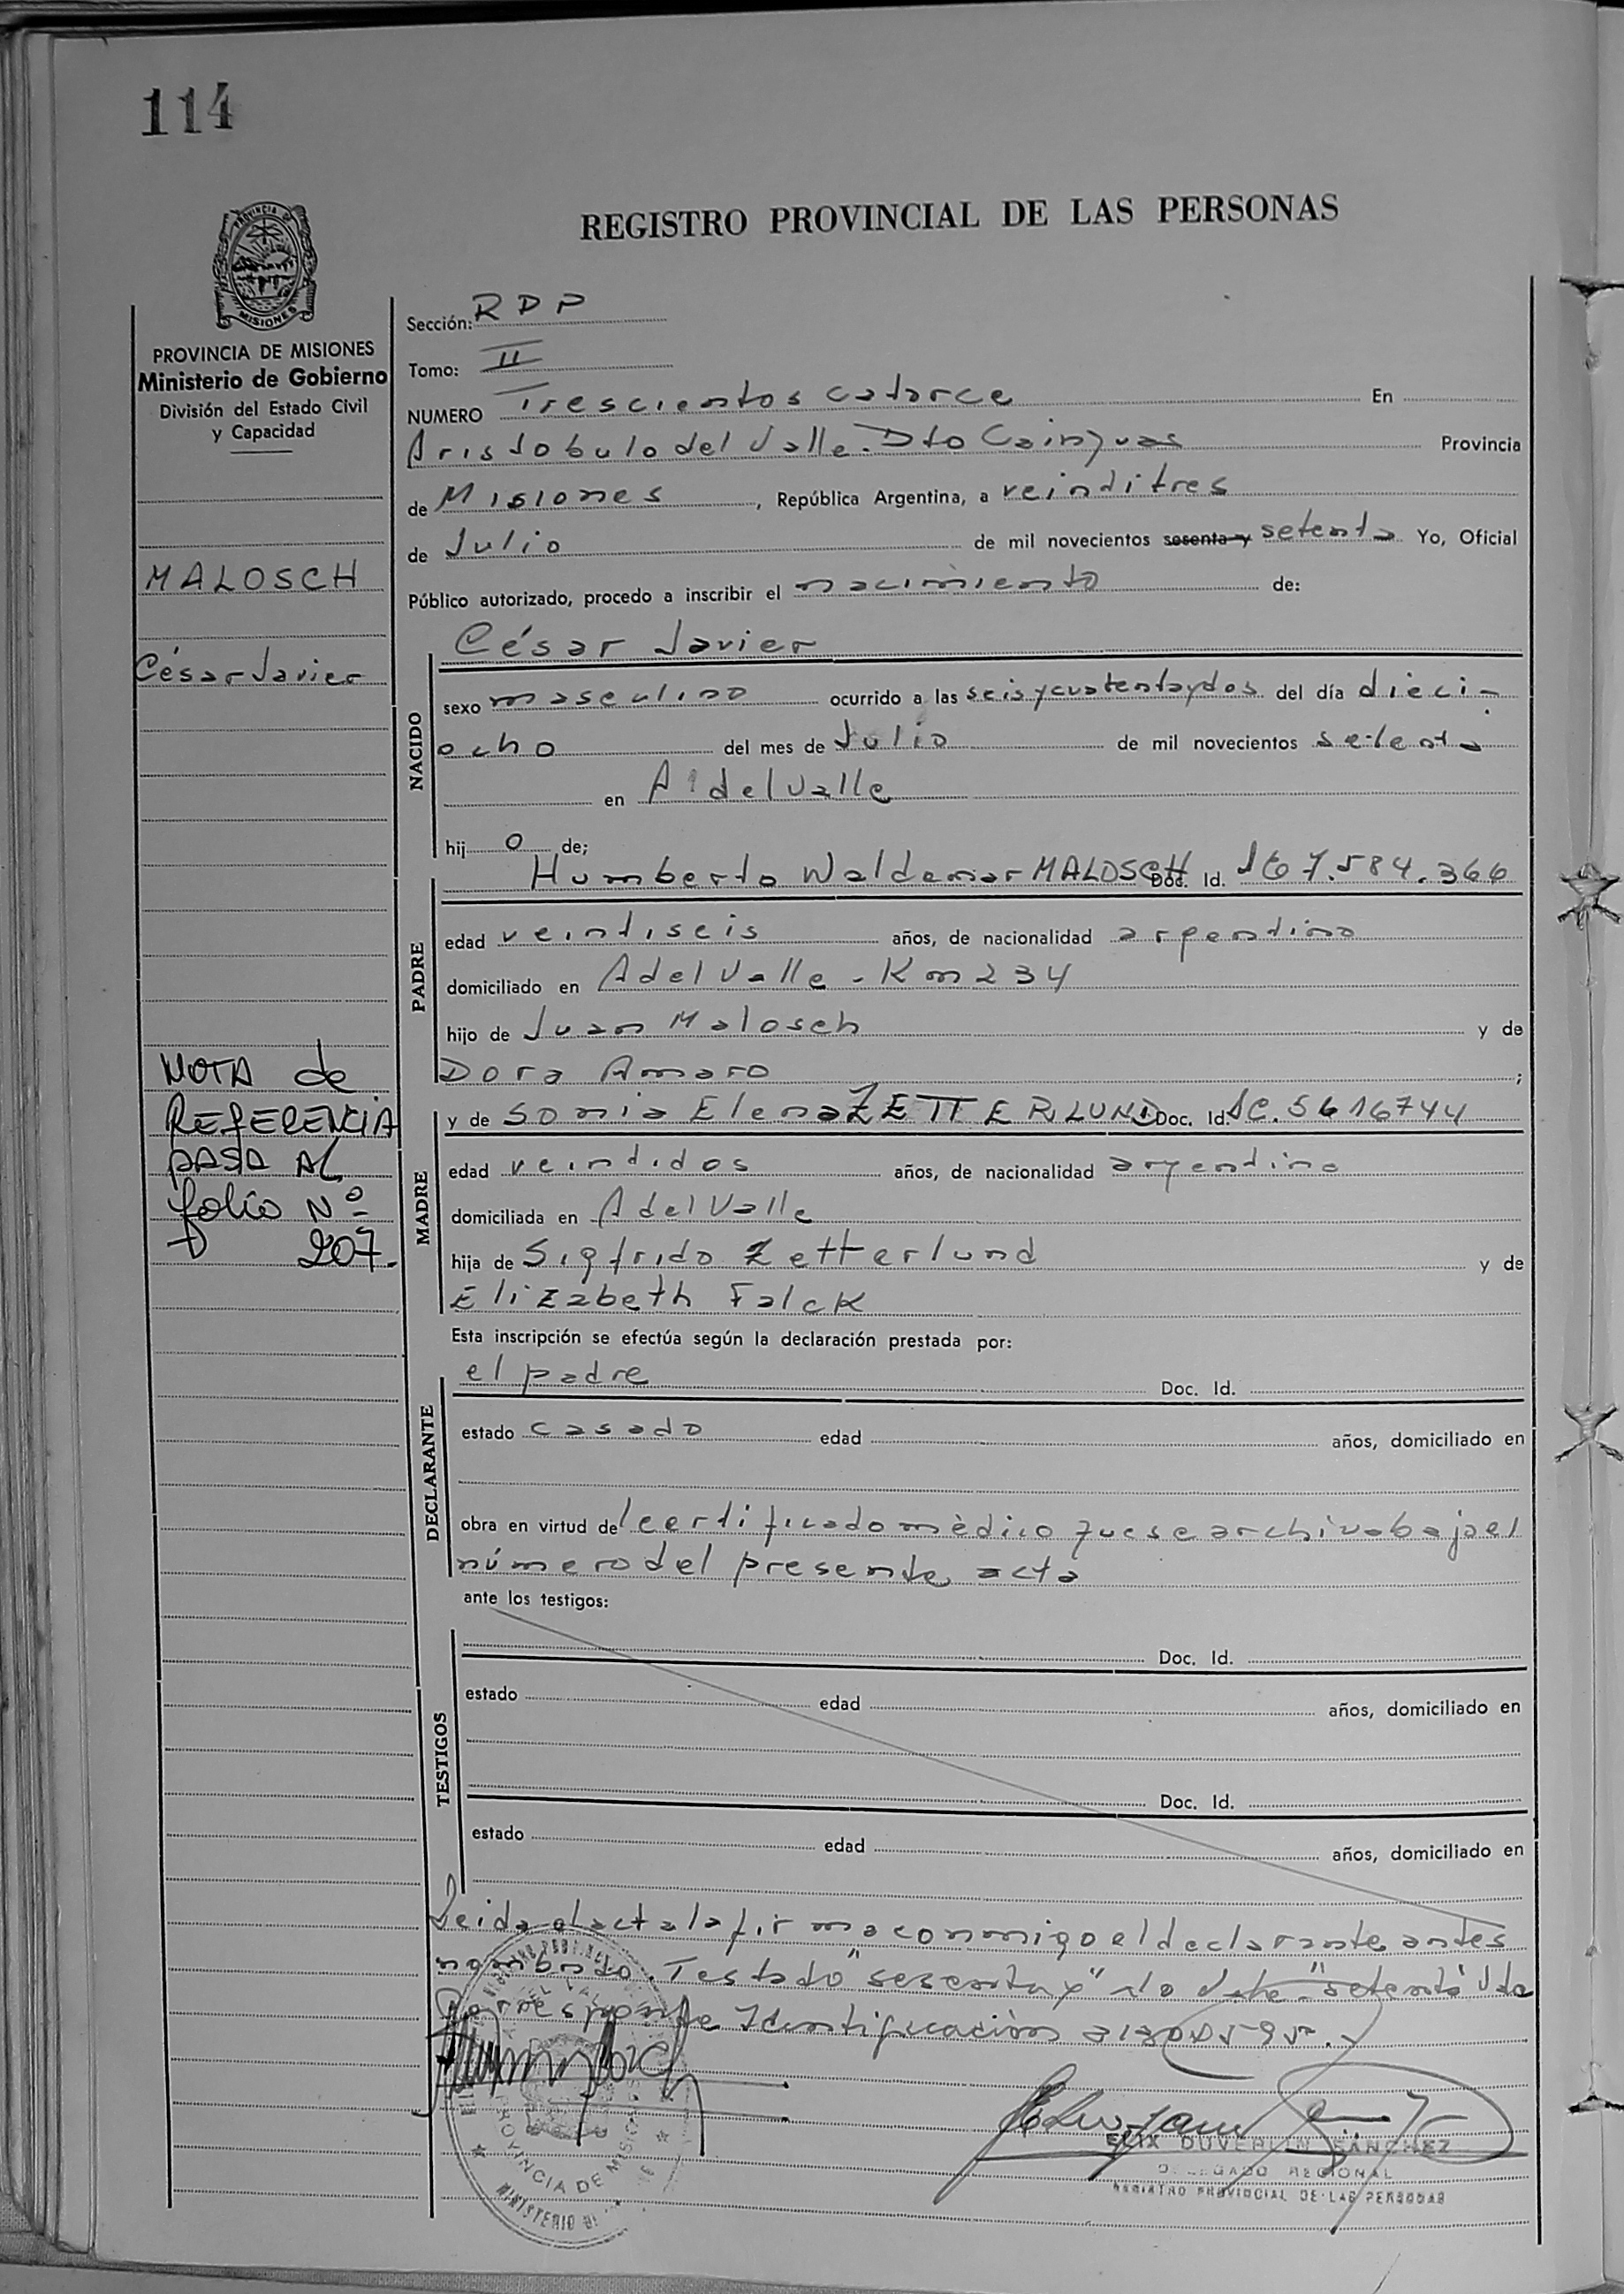 114
REGISTRO PROVINCIAL DE LAS PERSONAS
PROVINCIA DE
MISIONES
PROVINCIA DE MISIONES
Ministerio de Gobierno
División del Estado Civil
y Capacidad
MALOSCH
César Javier
NOTA de
REFERENCIA
PASA AL
folio Nº
207.
Sección: R D P
Tomo: II
NUMERO Trescientos catorce En
Aristobulo del Valle. Dto Cainguas Provincia
de Misiones, República Argentina, a veintitres
de Julio de mil novecientos sesenta y setenta Yo, Oficial
Público autorizado, procedo a inscribir el nacimiento de:
César Javier
NACIDO
sexo masculino ocurrido a las seis y cuarenta y dos del día dieci-
ocho del mes de Julio de mil novecientos setenta
en Aº del Valle
hijo de;
Humberto Waldemar MALOSCH Doc. Id. 7.584.366
PADRE
edad veintiseis años, de nacionalidad argentino
domiciliado en A del Valle - Km 234
hijo de Juan Malosch y de
Dora Amaro ;
y de Sonia Elena ZETTERLUND Doc. Id. LC. 5616744
MADRE
edad veintidos años, de nacionalidad argentina
domiciliada en A del Valle
hija de Sigfrido Zetterlund y de
Elizabeth Falck
Esta inscripción se efectúa según la declaración prestada por:
el padre Doc. Id.
DECLARANTE
estado casado edad años, domiciliado en
obra en virtud del certificado mèdico que se archiva bajo el
número del presente acta
ante los testigos:
TESTIGOS
Doc. Id.
estado edad años, domiciliado en
Doc. Id.
estado edad años, domiciliado en
Leida el acta la firma conmigo el declarante antes
nombrado. Testado "sesenta y" No Vale. "setenta" Vale
Corresponde Identificaciòn
PROVINCIA DE MISIONES
MINISTERIO DE
ELIX DUVERLIN SANCHEZ
DELEGADO REGIONAL
REGISTRO PROVINCIAL DE LAS PERSONAS